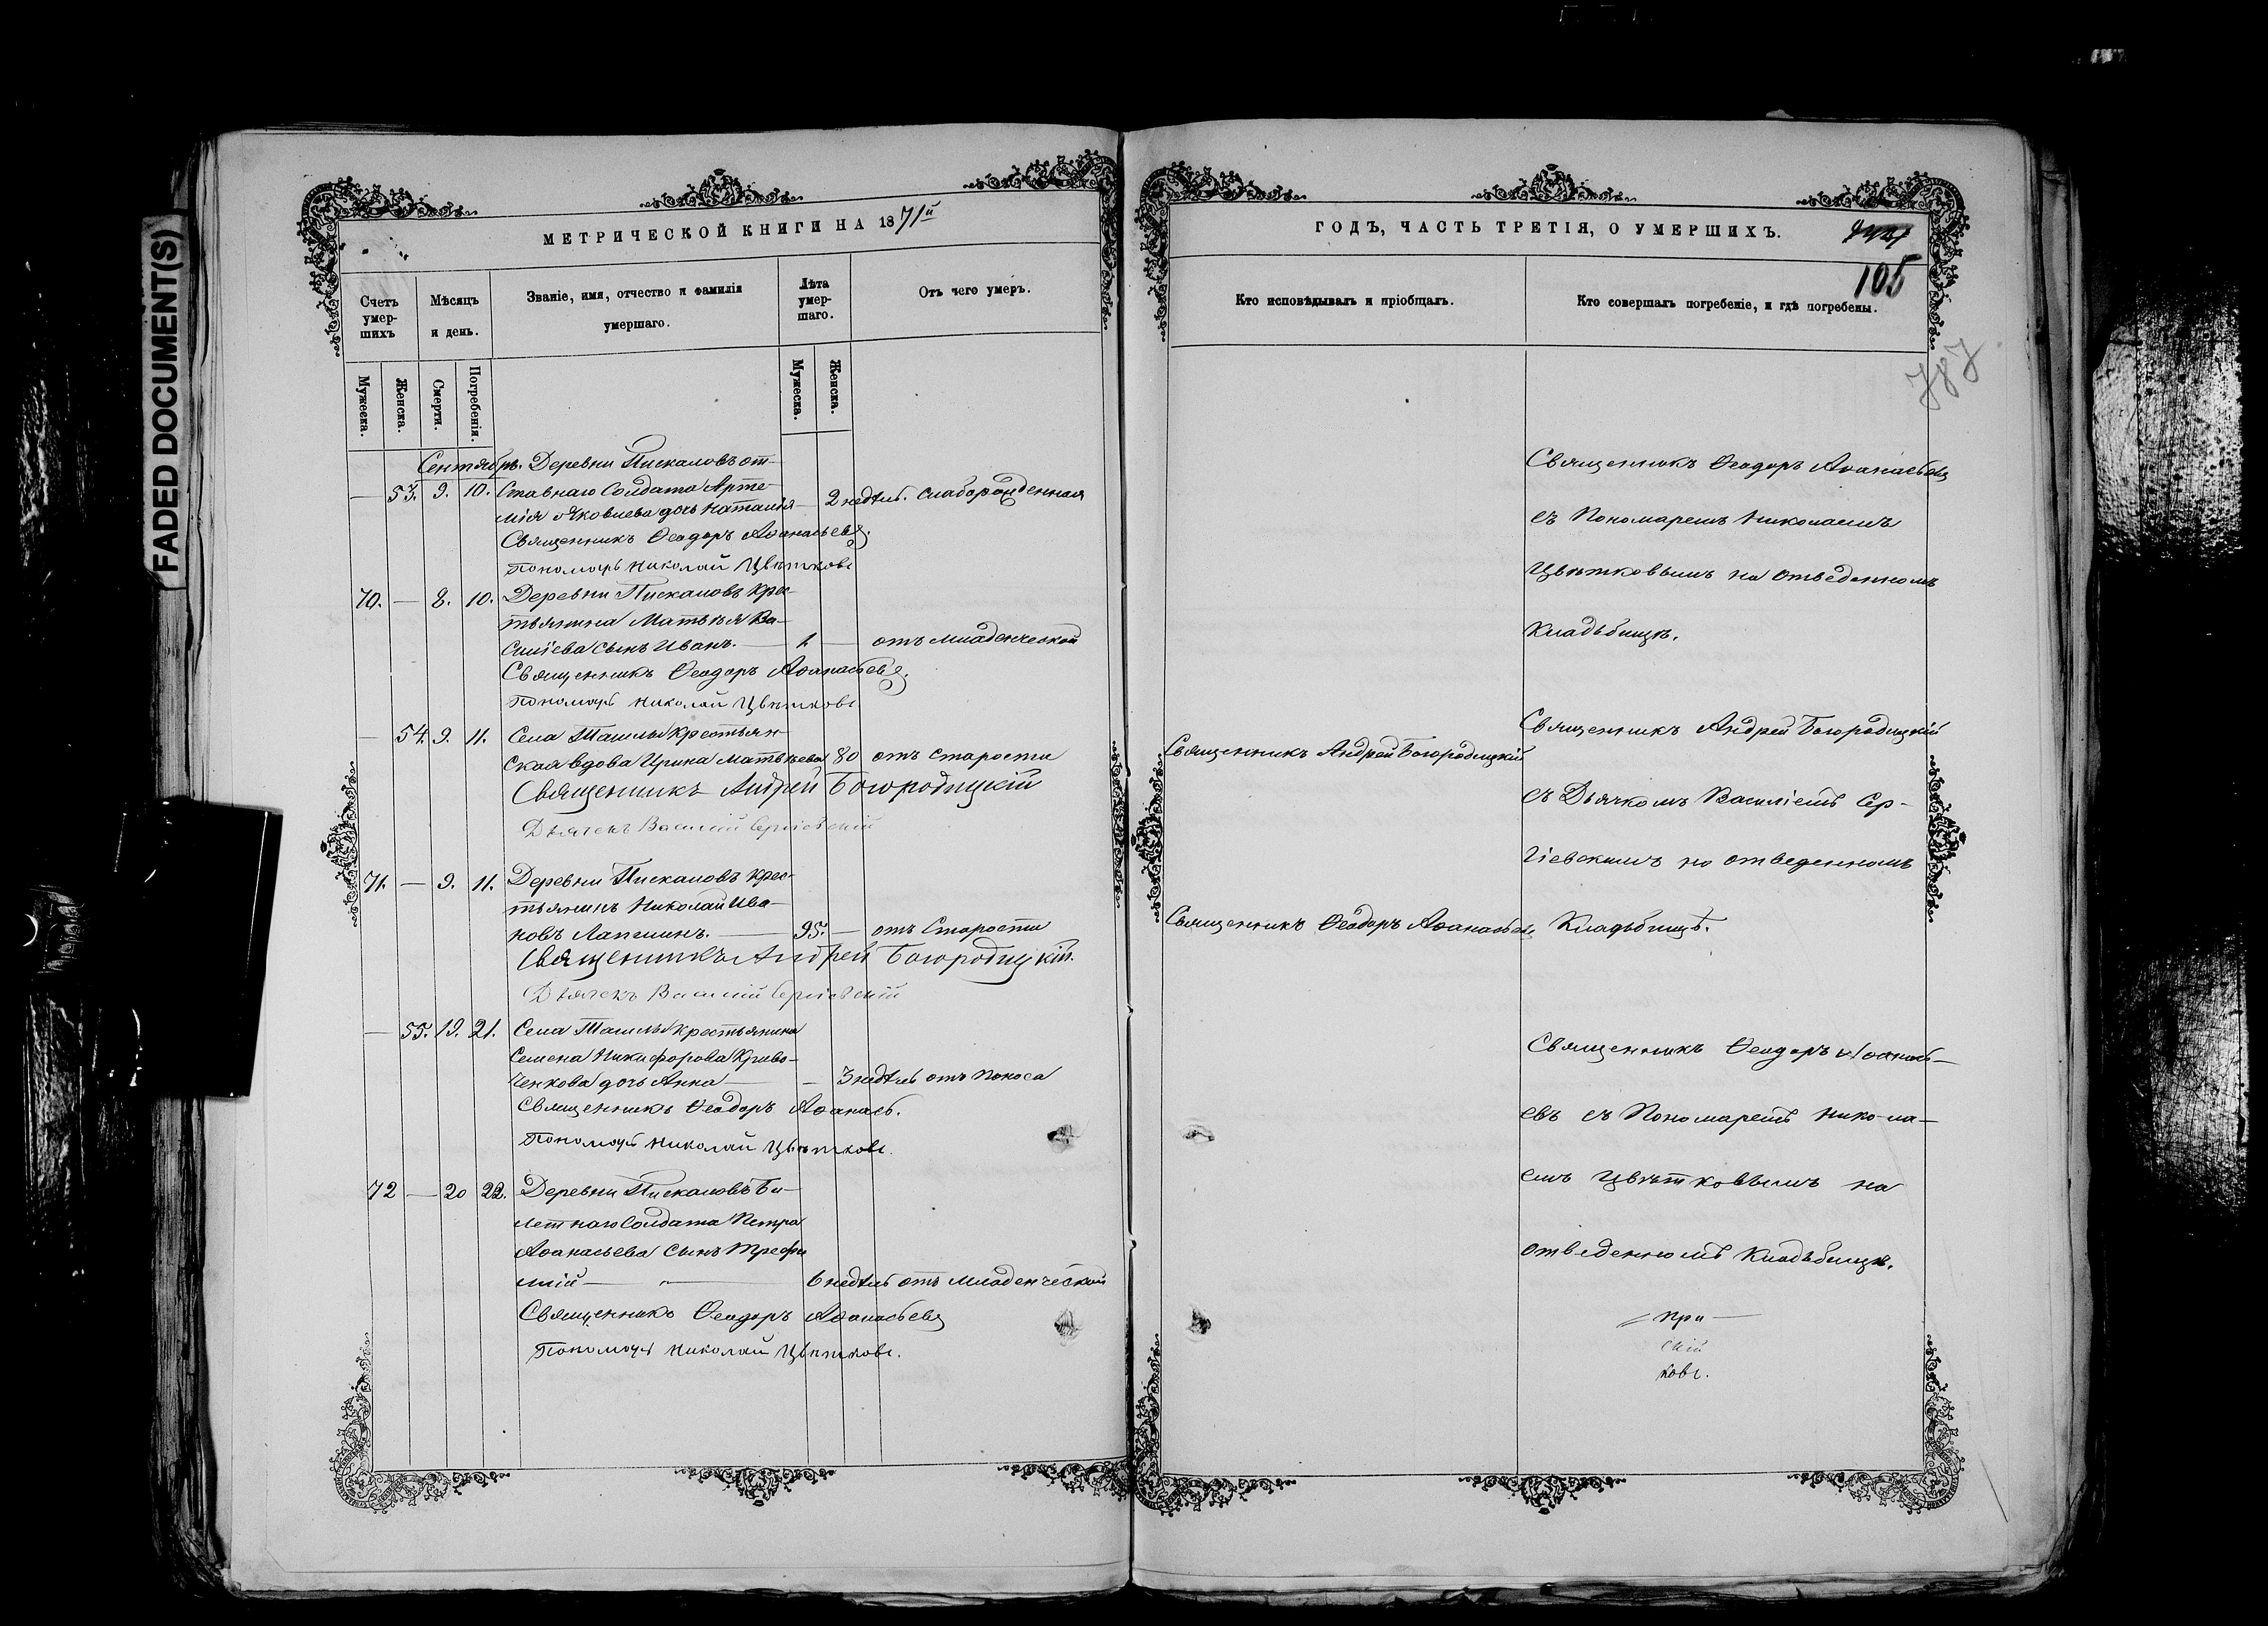 FADED DOCUMENT(S)
МЕТРИЧЕСКОЙ КНИГИ НА 1871й
Счетъ умер-шихъ
Мѣсяцъ и день.
Званіе, имя, отчество и фамилія умершаго.
Лѣта умер-шаго.
Отъ чего умеръ.
Мужеска.
Женска.
Смерти.
Погребенія.
Мужеска.
Женска.
Сентябрь. Деревни Пискаловъ от-
— 53. 9. 10. ставнаго Солдата Арте-
мія Яковлева дочь Наталія — 2 недѣль. слаборожденная
Священникъ Ѳеодоръ Аѳанасьевъ.
Пономарь Николай Цвѣтковъ
70. — 8. 10. Деревни Пискаловъ Крес-
тьянина Матвѣя Ва-
силіева сынъ Иванъ. — 1 — отъ младенческой
Священникъ Ѳеодоръ Аѳанасьевъ.
Пономарь Николай Цвѣтковъ
— 54. 9. 11. Села Ташлы Крестьян-
ская вдова Ирина Матвѣева 80 отъ старости
Священникъ Андрей Богородицкій
Дьячекъ Василій Сергіевскій
71. — 9. 11. Деревни Пискаловъ Крес-
тьянинъ Николай Ива-
новъ Лапшинъ. — 95. — отъ Старости
Священникъ Андрей Богородицкій.
Дьячекъ Василій Сергіевскій
— 55. 19. 21. Села Ташлы Крестьянина
Семена Никифорова Криво-
ченкова дочь Анна — — 3 недѣль отъ поноса
Священникъ Ѳеодоръ Аѳанасьев.
Пономарь Николай Цвѣтковъ.
72 — 20 22. Деревни Пискаловъ Би-
летнаго Солдата Петра
Аѳанасьева сынъ Трофи
мій — 6 недѣль отъ младенческой
Священникъ Ѳеодоръ Аѳанасьевъ
Пономарь Николай Цвѣтковъ.
ГОДЪ, ЧАСТЬ ТРЕТІЯ, О УМЕРШИХЪ.
105
787
Кто исповѣдывалъ и пріобщалъ.
Кто совершалъ погребеніе, и гдѣ погребены.
Священникъ Ѳеодоръ Аѳанасьевъ
съ Пономаремъ Николаемъ
Цвѣтковымъ на отведенномъ
Кладьбищѣ.
Священникъ Андрей Богородицкій
Священникъ Андрей Богородицкій
съ Дьячкомъ Василіемъ Сер-
гіевскимъ на отведенномъ
Священникъ Ѳеодоръ Аѳанасьевъ
Кладьбищѣ.
Священникъ Ѳеодоръ Аѳанась-
евъ съ Пономаремъ Никола-
емъ Цвѣтковымъ на
отведенномъ Кладьбищѣ.
при
скій
ковъ.